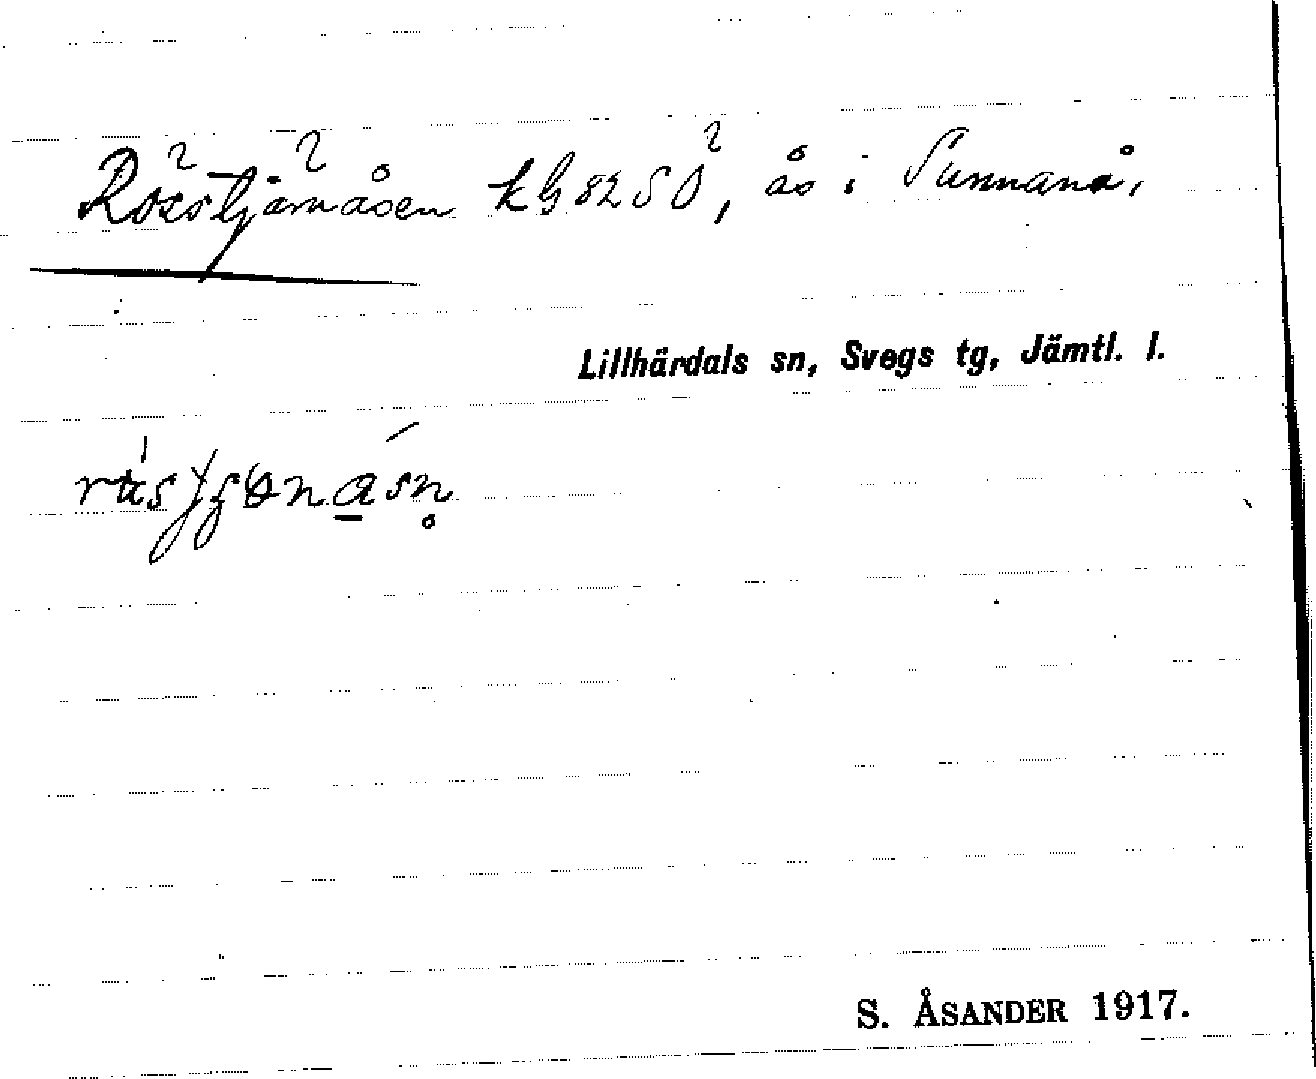 Rösstjärnåsen kg 82 SO, ås i Sunnanå,
Lillhärdals sn, Svegs tg, Jämtl. l.
S. ÅSANDER 1917.